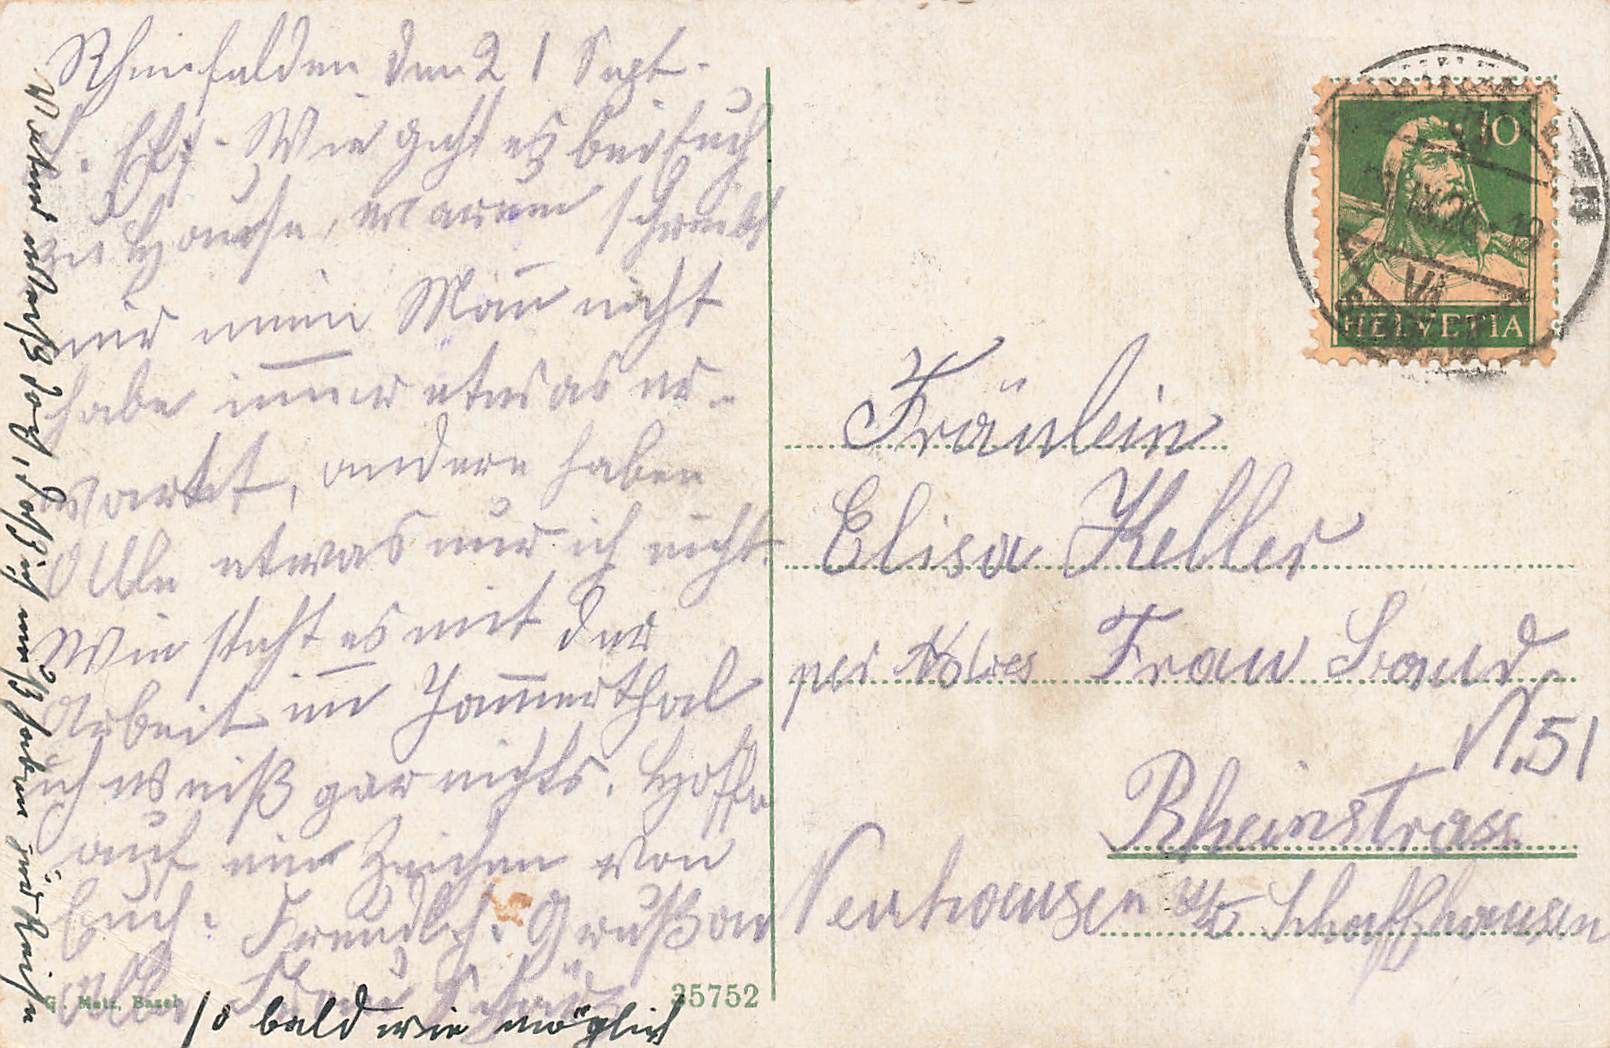 Rheinfelden den 21 Sept.
L. Elis. Wie geht es bei Euch
zu Hause, warum schreibt
mir mein Mann nicht
habe immer etwas er-
wartet, andere haben
Alle etwas nur ich nicht.
Wie steht es mit der
Arbeit im Jammerthal
ich weiß gar nichts. Hoffe
auf ein Zeichen von
Euch. Freundlich. Gruß an
Alle Frau
so bald wie möglich
doch, daß ich muß haben
G. Metz, Basel
35752
10
HELVETIA
Fräulein
Elisa Keller
per Frau Brand
N. 51
Rheinstrasse
Neuhausen a/ Schaffhausen